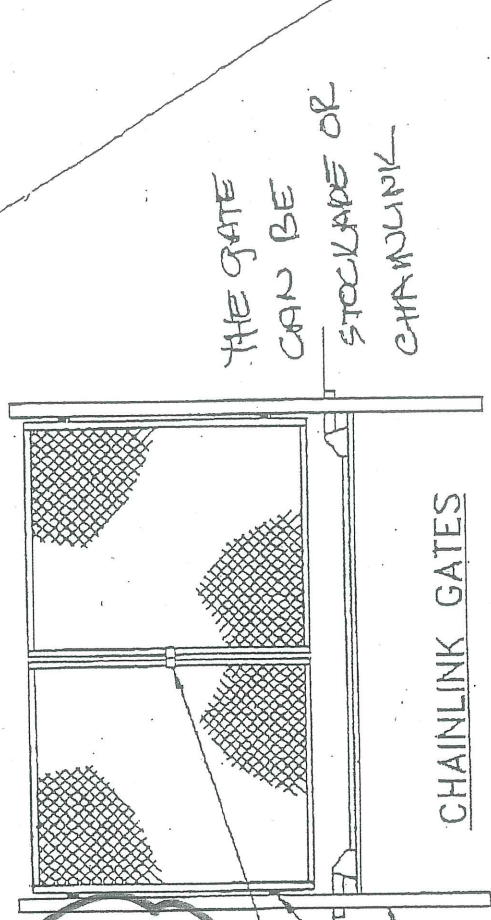 THE GATE
CAN BE
STOCKADE OR
CHAINLINK
CHAINLINK GATES